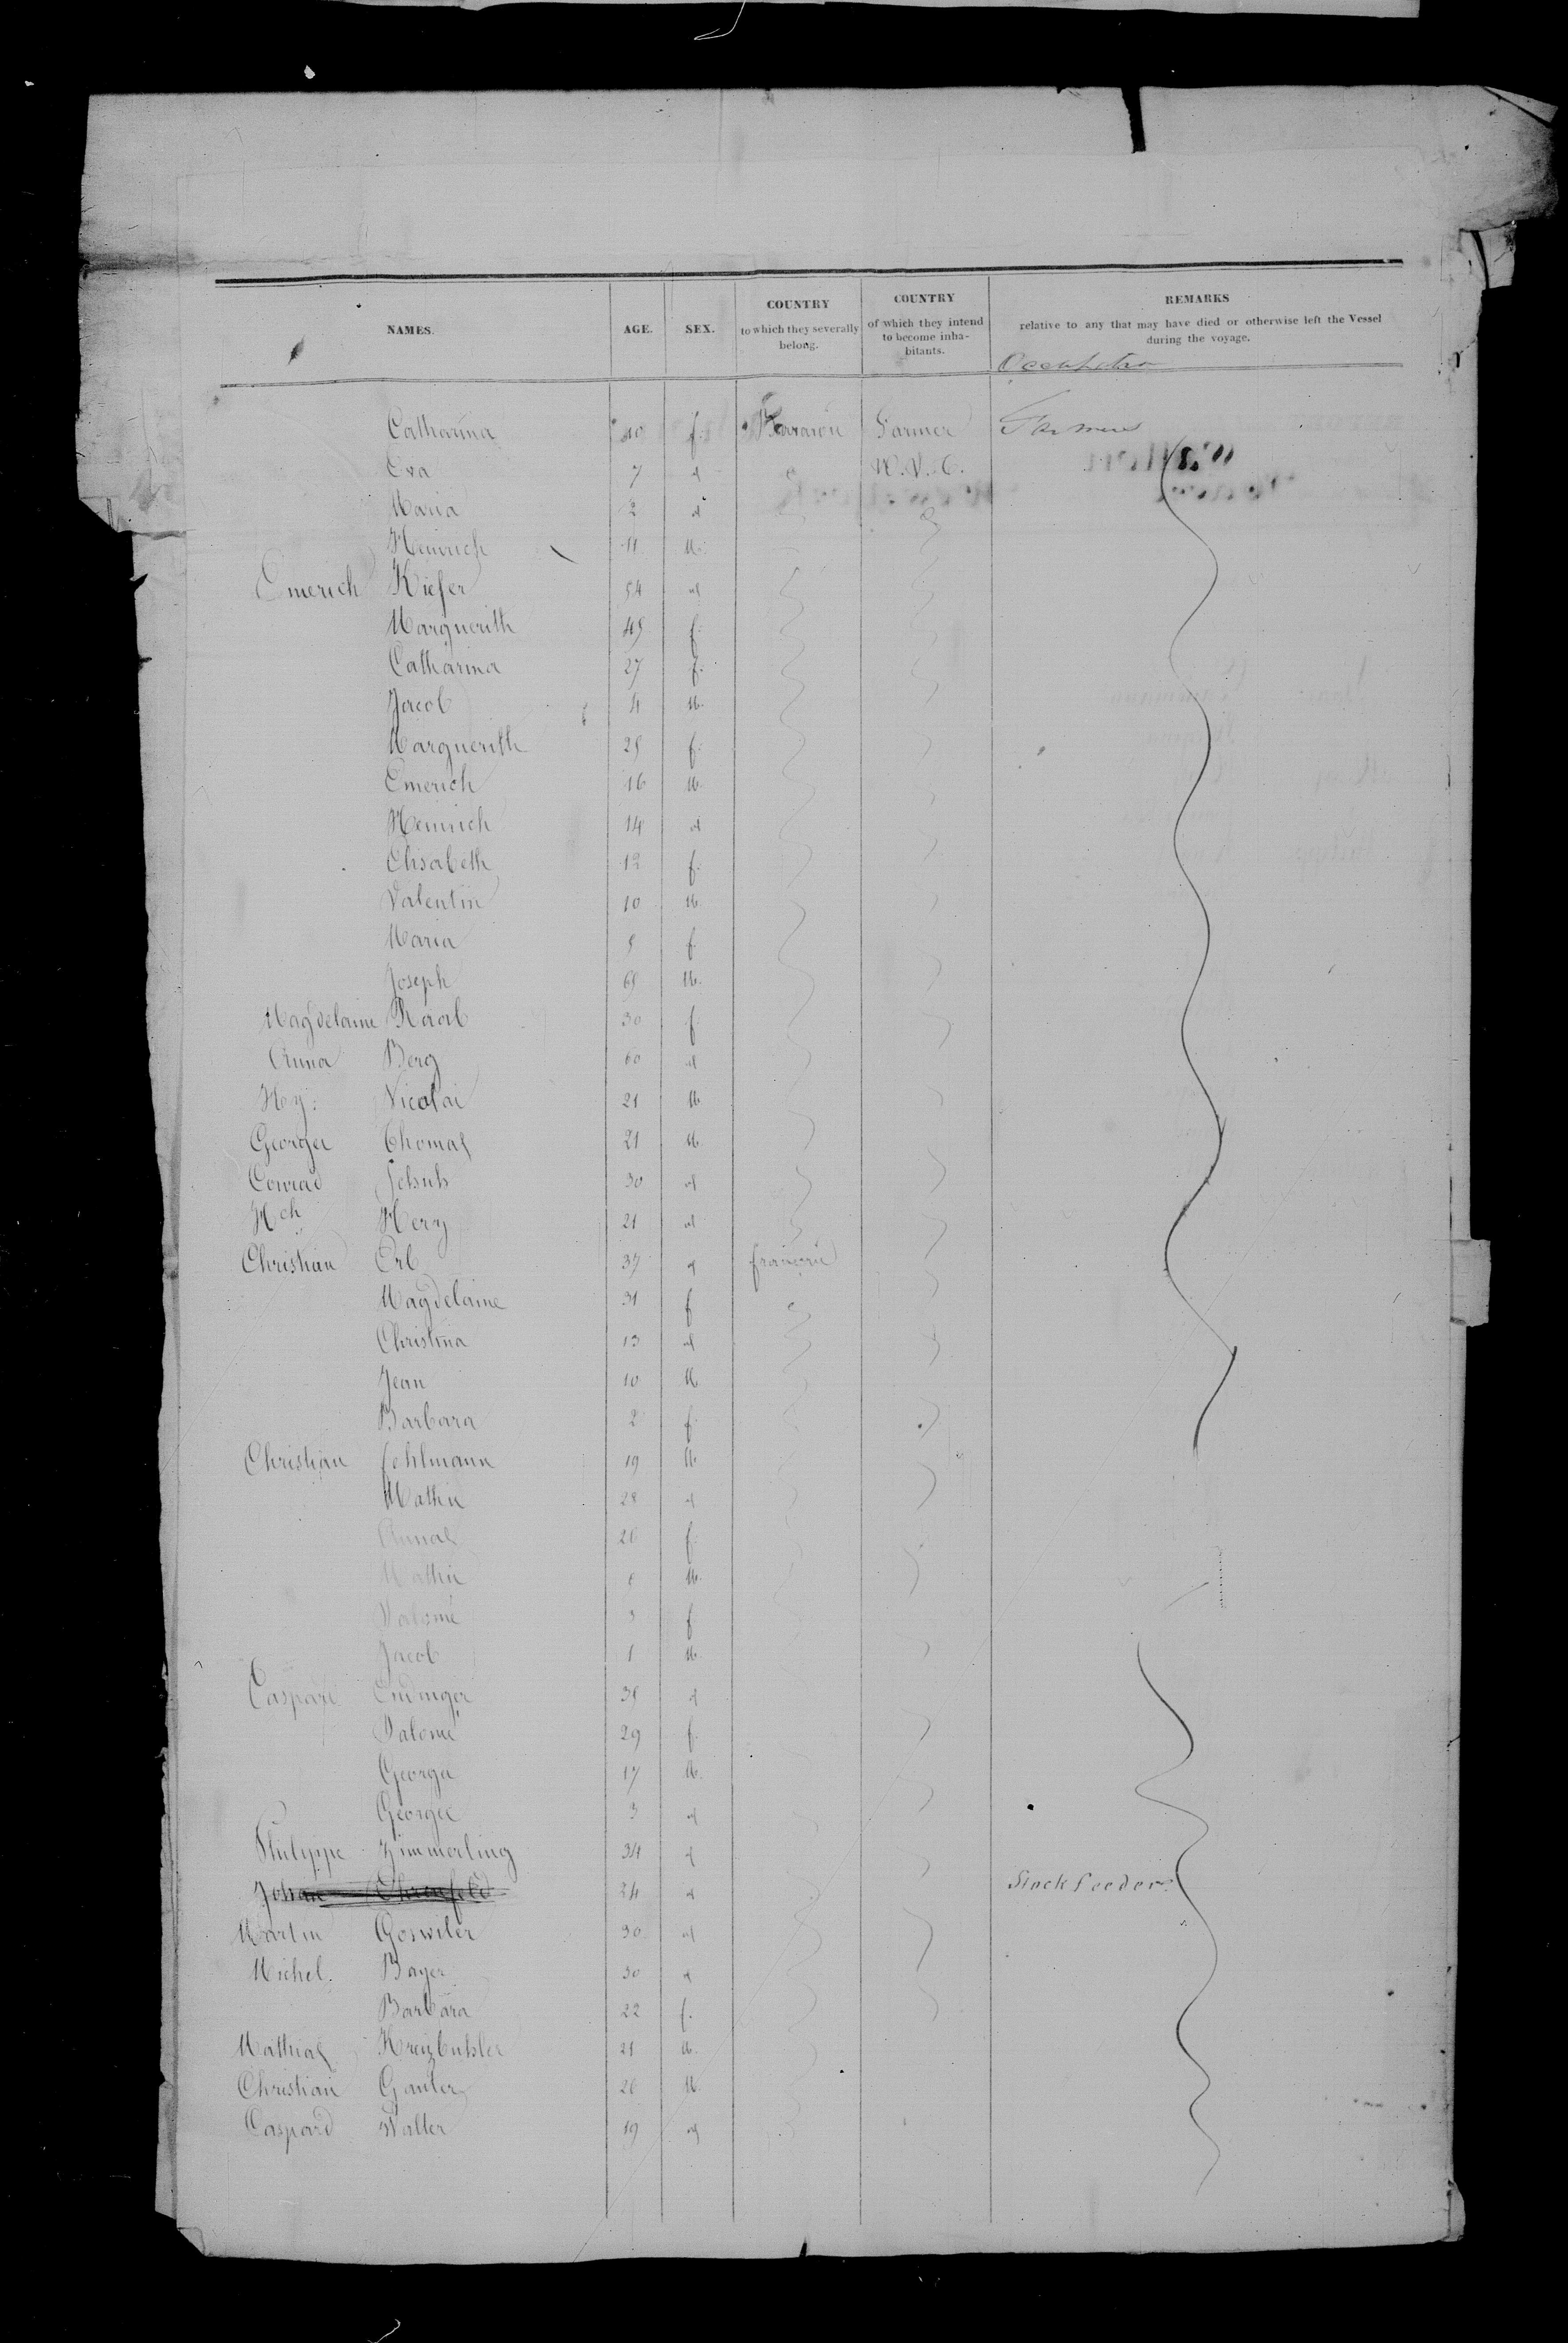 NAMES. AGE. SEX. COUNTRY to which they severally belong. COUNTRY of which they intend to become inhabitants. REMARKS relative to any that may have died or otherwise left the Vessel during the voyage.
Catharina 40 f. Farmer Farmers
Eva 7 d
Maria 2 d
Heinrich 11 M.
Emerich Kiefer 54 d
Marguerith 45 f.
Catharina 27 f.
Jacob 4 M.
Marguerith 25 f.
Emerich 16 M.
Heinrich 14 d
Elisabeth 12 f.
Valentin 10 M.
Maria 5 f.
Joseph 65 M.
Magdelaine Raab 30 f.
Anna Berg 60 d
Hy: Nicolai 21 M
George Thomas 21 M.
Conrad Schuh 30 d
Hch Herz 21 d
Christian Erb 37 d
Magdelaine 31 f
Christina 13 d
Jean 10 M
Barbara 2 f.
Christian 19 M.
Mathie 28 d
Annas 26 f.
Mathie M.
Salomé 3 f
Jacob 1 M.
Caspard 35 d
Salomé 29 f.
George 17 M.
George 3 d
Philippe Zimmerling 34 d
Johan Ehrenfeld 34 d
Martin Goswiler 30 d
Michel. Bayer 30 d
Barbara 22 f.
Mathias Kreizbuhler 21 M.
Christian Ganter 26 M.
Caspard Walter 19 d